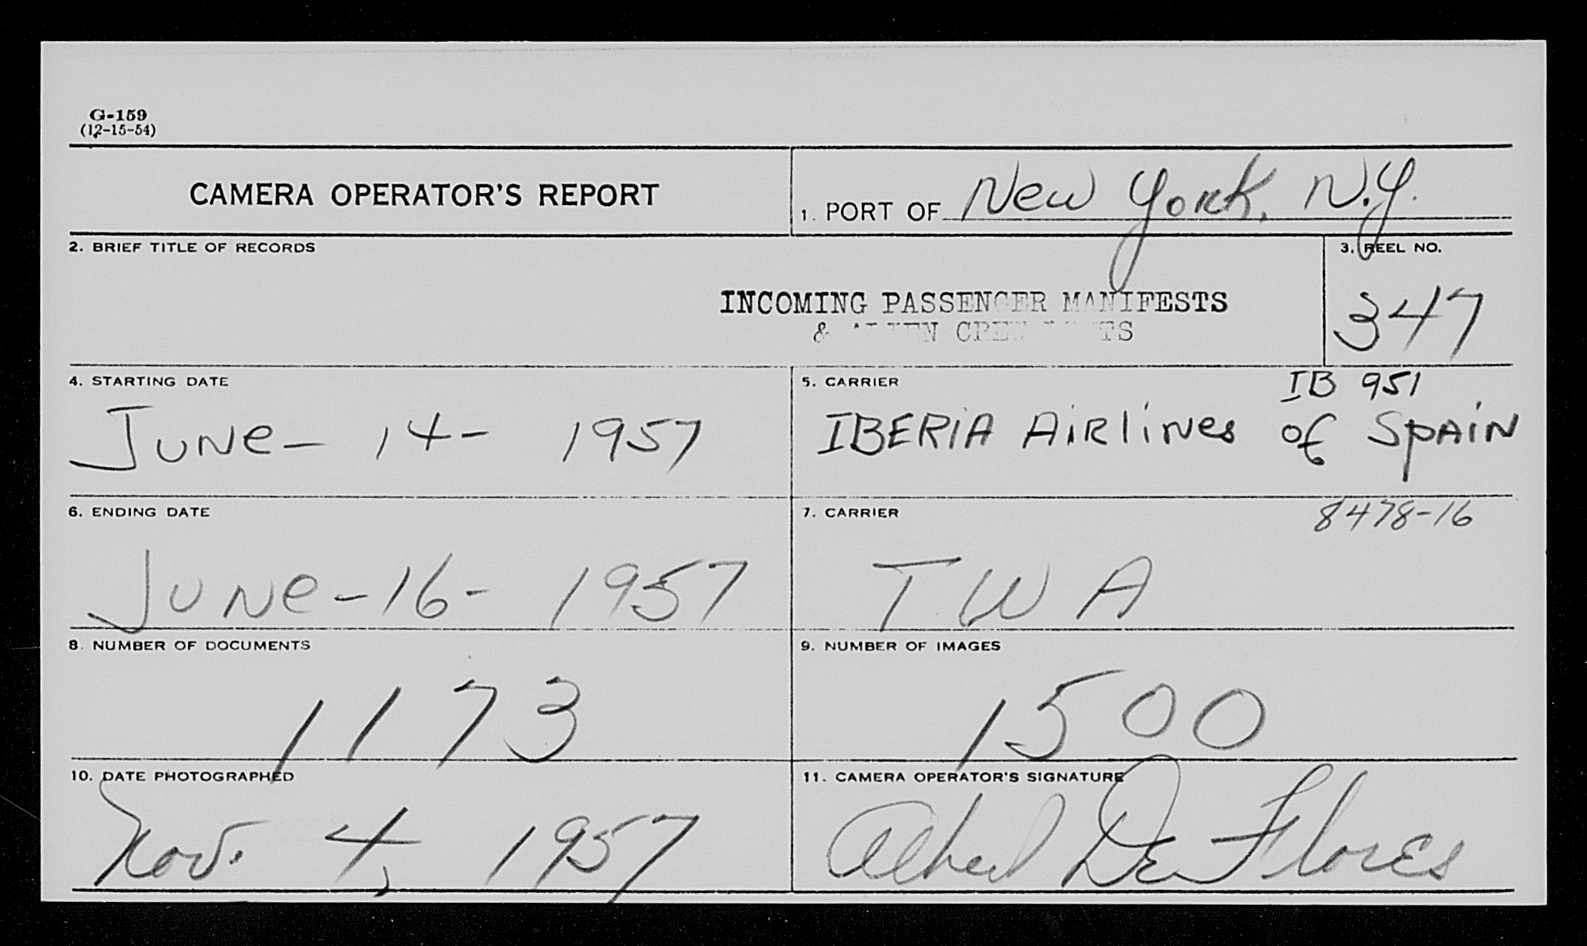 G-159
(12-15-54)
CAMERA OPERATOR'S REPORT
1. PORT OF New York, N.Y.
2. BRIEF TITLE OF RECORDS
INCOMING PASSENGER MANIFESTS
& CREW
3. REEL NO.
347
4. STARTING DATE
June - 14 - 1957
5. CARRIER
IB 951
IBERIA AiRlines of SpAiN
6. ENDING DATE
June - 16 - 1957
7. CARRIER
8478-16
TWA
8. NUMBER OF DOCUMENTS
1173
9. NUMBER OF IMAGES
1500
10. DATE PHOTOGRAPHED
Nov. 4, 1957
11. CAMERA OPERATOR'S SIGNATURE
Albert De Flores